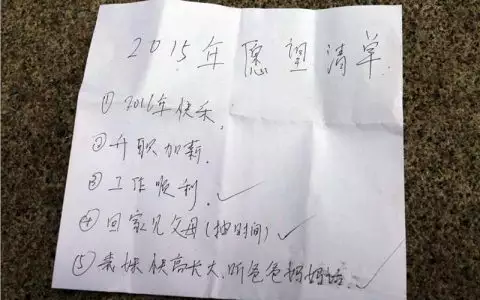 2015年愿望清单.
①2016年快乐.
②升职加薪.
③工作顺利. ✓
④回家见父母(抽时间) ✓
⑤ 妹快高长大,听爸爸妈妈话. ✓